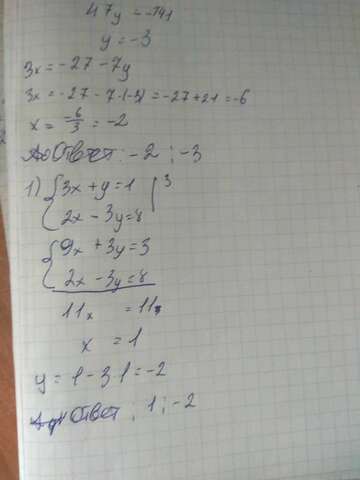 47y = -141
y = -3
3x = -27 - 7y
3x = -27 - 7·(-3) = -27 + 21 = -6
x = -6/3 = -2
Ответ: -2 ; -3
1) { 3x + y = 1 | 3
2x - 3y = 8
{ 9x + 3y = 3
2x - 3y = 8
11x = 11
x = 1
y = 1 - 3·1 = -2
Ответ: 1 ; -2